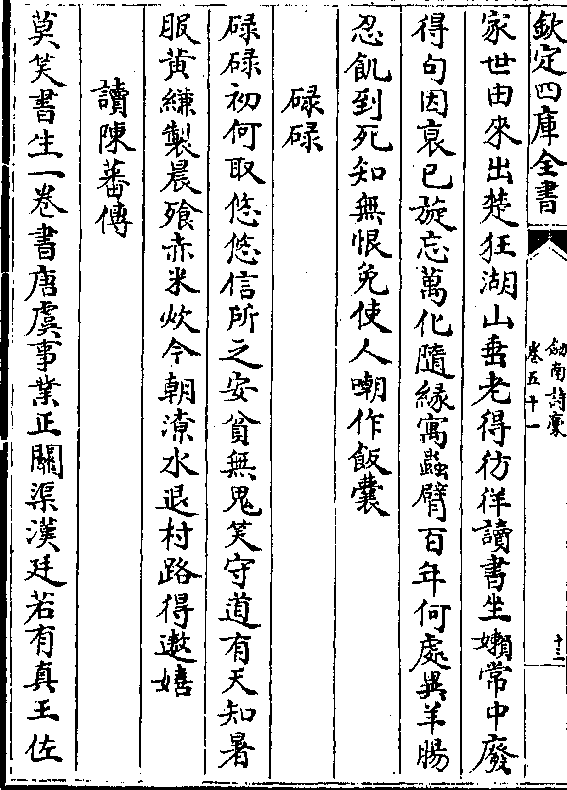 欽定四庫全書
劍南詩稾
卷五十一
十三
家世由來出楚狂湖山垂老得彷徉讀書坐嬾常中廢
得句因哀已旋忘萬化隨緣寓蟲臂百年何處異羊腸
忍飢到死知無恨免使人嘲作飯囊
碌碌
碌碌初何取悠悠信所之安貧無鬼笑守道有天知暑
服黃縑製晨飱赤米炊今朝潦水退村路得遨嬉
讀陳蕃傳
莫笑書生一卷書唐虞事業正關渠漢廷若有真王佐